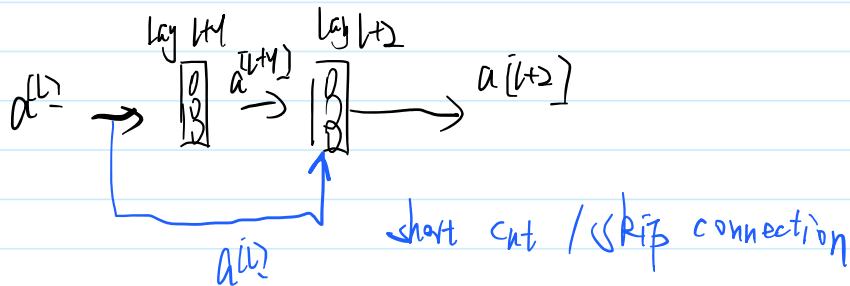 Lay l+1 Lay l+2
a[l] a[l+1] a[l+2]
short cut / skip connection
a[l]